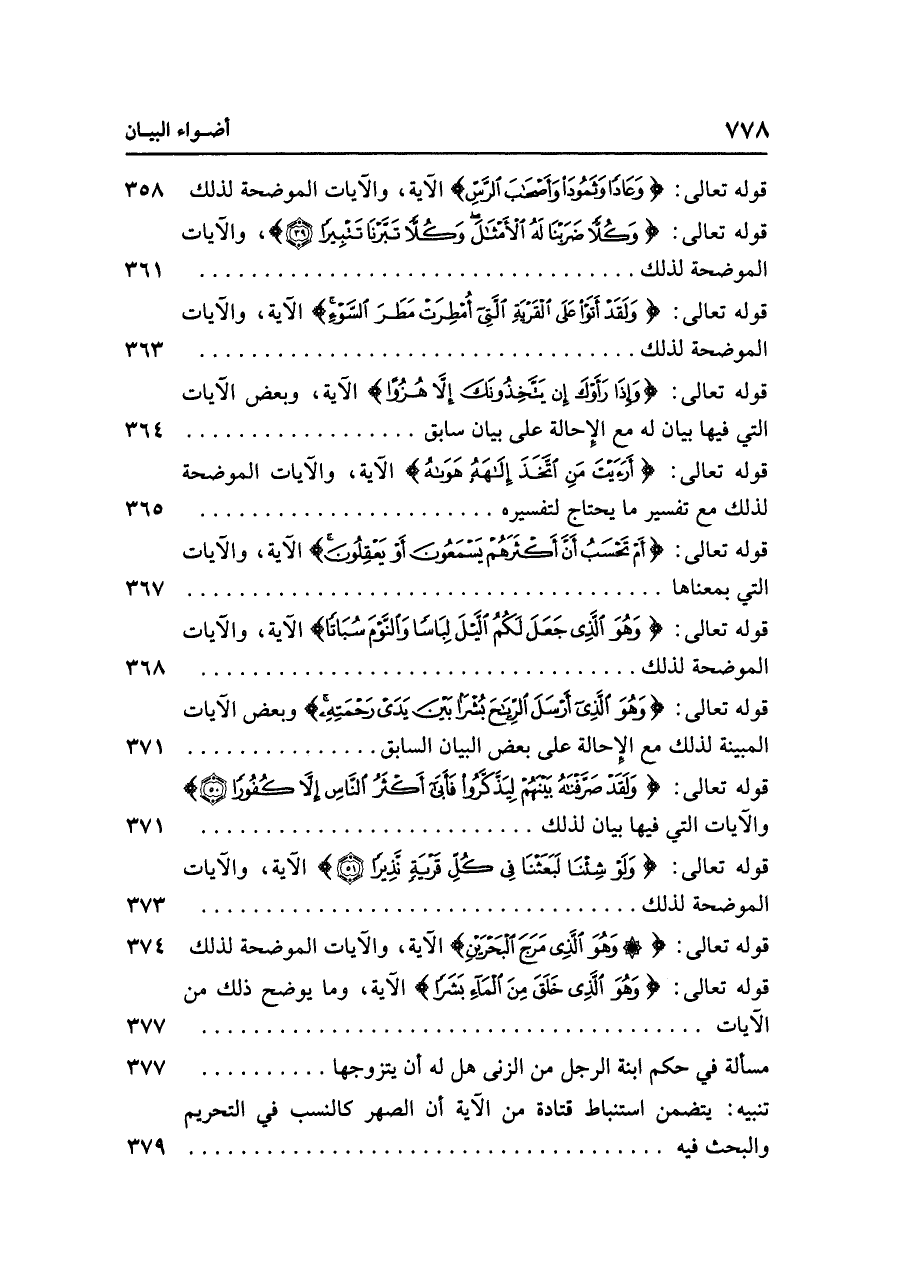 ٧٧٨ أضواء البيان
قوله تعالى: ﴿ وَعَادًا وَثَمُودَا۟ وَأَصْحَٰبَ ٱلرَّسِّ﴾ الآية، والآيات الموضحة لذلك ٣٥٨
قوله تعالى: ﴿ وَكُلًّا ضَرَبْنَا لَهُ ٱلْأَمْثَٰلَۖ وَكُلًّا تَبَّرْنَا تَتْبِيرًا ٣٩﴾، والآيات
الموضحة لذلك .................................. ٣٦١
قوله تعالى: ﴿ وَلَقَدْ أَتَوْا۟ عَلَى ٱلْقَرْيَةِ ٱلَّتِىٓ أُمْطِرَتْ مَطَرَ ٱلسَّوْءِۚ﴾ الآية، والآيات
الموضحة لذلك .................................. ٣٦٣
قوله تعالى: ﴿وَإِذَا رَأَوْكَ إِن يَتَّخِذُونَكَ إِلَّا هُزُوًا﴾ الآية، وبعض الآيات
التي فيها بيان له مع الإحالة على بيان سابق .................. ٣٦٤
قوله تعالى: ﴿ أَرَءَيْتَ مَنِ ٱتَّخَذَ إِلَٰهَهُۥ هَوَىٰهُ﴾ الآية، والآيات الموضحة
لذلك مع تفسير ما يحتاج لتفسيره ....................... ٣٦٥
قوله تعالى: ﴿أَمْ تَحْسَبُ أَنَّ أَكْثَرَهُمْ يَسْمَعُونَ أَوْ يَعْقِلُونَۚ﴾ الآية، والآيات
التي بمعناها ..................................... ٣٦٧
قوله تعالى: ﴿ وَهُوَ ٱلَّذِى جَعَلَ لَكُمُ ٱلَّيْلَ لِبَاسًا وَٱلنَّوْمَ سُبَاتًا﴾ الآية، والآيات
الموضحة لذلك .................................. ٣٦٨
قوله تعالى: ﴿وَهُوَ ٱلَّذِىٓ أَرْسَلَ ٱلرِّيَٰحَ بُشْرًۢا بَيْنَ يَدَىْ رَحْمَتِهِۦۚ﴾ وبعض الآيات
المبينة لذلك مع الإحالة على بعض البيان السابق ............... ٣٧١
قوله تعالى: ﴿ وَلَقَدْ صَرَّفْنَٰهُ بَيْنَهُمْ لِيَذَّكَّرُوا۟ فَأَبَىٰٓ أَكْثَرُ ٱلنَّاسِ إِلَّا كُفُورًا ٥٠﴾
والآيات التي فيها بيان لذلك .......................... ٣٧١
قوله تعالى: ﴿ وَلَوْ شِئْنَا لَبَعَثْنَا فِى كُلِّ قَرْيَةٍ نَّذِيرًا ٥١﴾ الآية، والآيات
الموضحة لذلك .................................. ٣٧٣
قوله تعالى: ﴿ ۞ وَهُوَ ٱلَّذِى مَرَجَ ٱلْبَحْرَيْنِ﴾ الآية، والآيات الموضحة لذلك ٣٧٤
قوله تعالى: ﴿ وَهُوَ ٱلَّذِى خَلَقَ مِنَ ٱلْمَآءِ بَشَرًا﴾ الآية، وما يوضح ذلك من
الآيات ....................................... ٣٧٧
مسألة في حكم ابنة الرجل من الزنى هل له أن يتزوجها .......... ٣٧٧
تنبيه: يتضمن استنباط قتادة من الآية أن الصهر كالنسب في التحريم
والبحث فيه ..................................... ٣٧٩